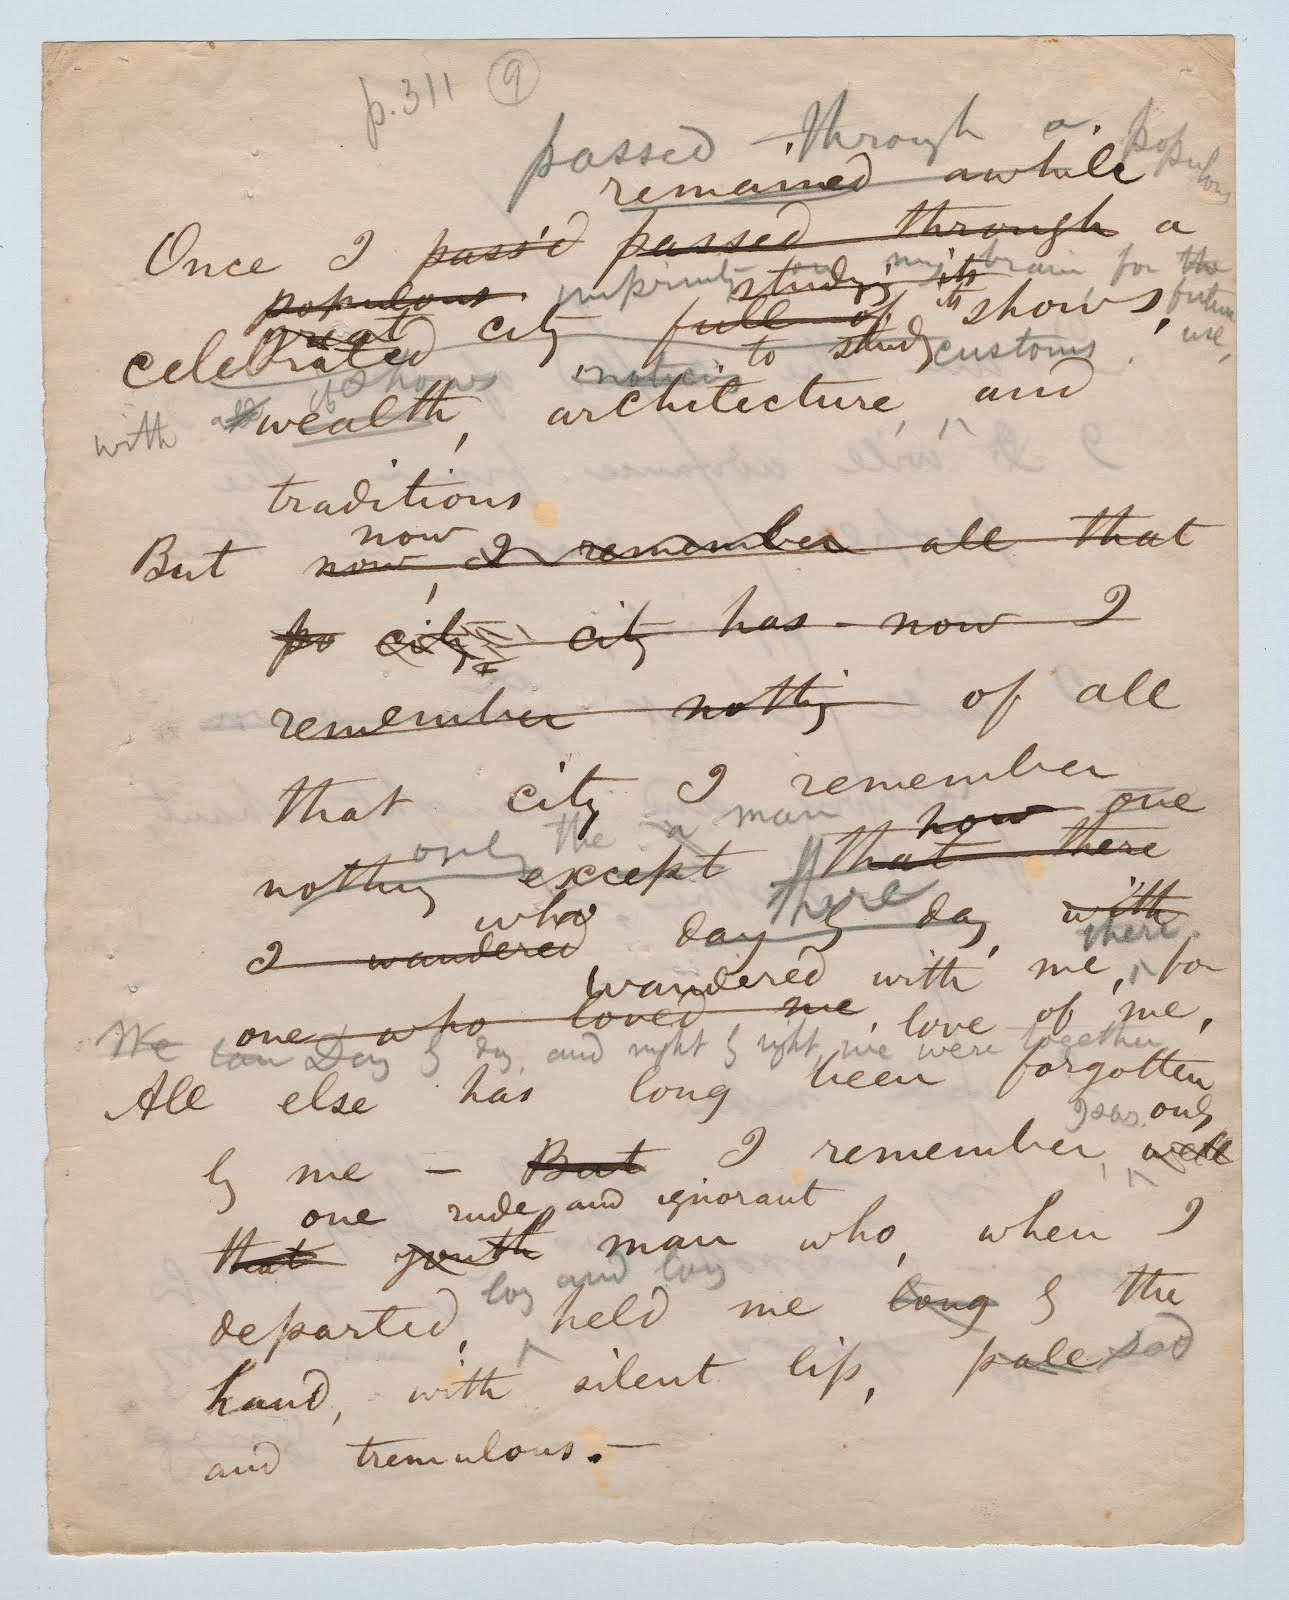 p. 311 9
passed through a populous
remained awhile
Once I pass'd passed through a
imprinting on my brain, for the future use,
populous studying its
great
celebrated city full of its shows,
to study customs
its shows noticing
with all wealth, architecture, and
traditions
now
But now, I remember all that
po city city has now I
remember nothing of all
that city I remember
only the a man how one
nothing except that there
there
who
I wandered day by day, with
there
wandered with me, for
one who loved me, love of me,
We Day by day, and night by night, we were together,
All else has long been forgotten
I say only
by me — But I remember, well
one rude and ignorant
that youth man who, when I
long and long
departed, held me long by the
hand, with silent lip, pale sad
and tremulous.—